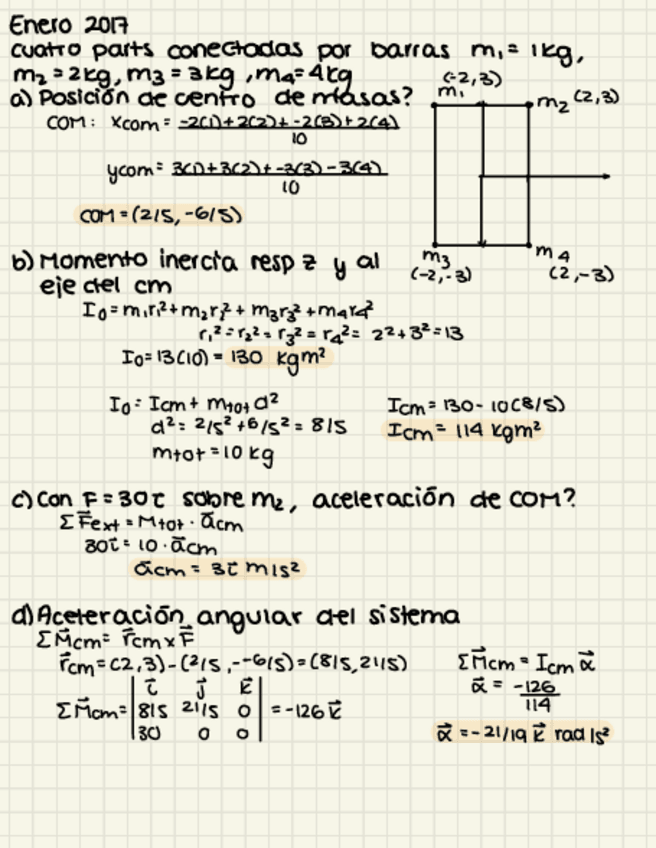 Enero 2017
cuatro parts conectadas por barras m₁ = 1kg,
m₂ = 2kg, m₃ = 3kg, m₄ = 4kg
a) Posición de centro de masas?
(-2,3)
m₁
m₂ (2,3)
COM: xcom = -2(1)+2(2)+-2(3)+2(4)
10
ycom = 3(1)+3(2)+-3(3)-3(4)
10
COM = (2/5, -6/5)
m₃
(-2,-3)
m₄
(2,-3)
b) Momento inercia resp z y al
eje del cm
I₀ = m₁r₁²+m₂r₂²+m₃r₃²+m₄r₄²
r₁² = r₂² = r₃² = r₄² = 2²+3² = 13
I₀ = 13(10) = 130 kgm²
I₀ = Icm + mtot d²
d² = 2/5² + 6/5² = 8/5
mtot = 10 kg
Icm = 130 - 10(8/5)
Icm = 114 kgm²
c) Con F = 30i⃗ sobre m₂, aceleración de COM?
ΣF⃗ext = Mtot · a⃗cm
30i⃗ = 10 · a⃗cm
a⃗cm = 3i⃗ m/s²
d) Aceleración angular del sistema
ΣM⃗cm = r⃗cm x F⃗
r⃗cm = (2,3)-(2/5,--6/5) = (8/5, 21/5)
ΣM⃗cm = | i⃗ j⃗ k⃗ |
| 8/5 21/5 0 | = -126 k⃗
| 30 0 0 |
ΣM⃗cm = Icm α⃗
α⃗ = -126
114
α⃗ = -21/19 k⃗ rad/s²